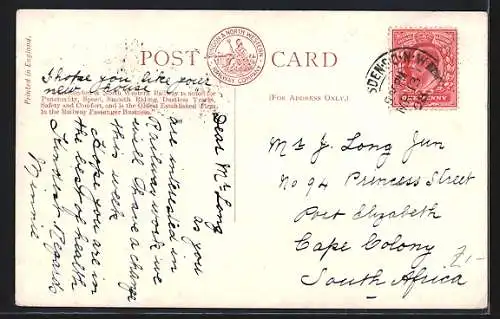 POST CARD
LONDON & NORTH WESTERN
RAILWAY COMPANY
Printed in England.
I hope you like your
new house
The London and North Western Railway is noted for
Punctuality, Speed, Smooth Riding, Dustless Tracks,
Safety and Comfort, and is the Oldest Established Firm
in the Railway Passenger Business.
(FOR ADDRESS ONLY.)
Dear Mr Long
As you
are interested in
Railway work we
will have a change
this week
Hope you are in
the best of health
Kindest Regards
Winnie
Mr J. Long Jun
No 94 Princess Street
Port Elizabeth
Cape Colony
South Africa
ONE PENNY
2,-